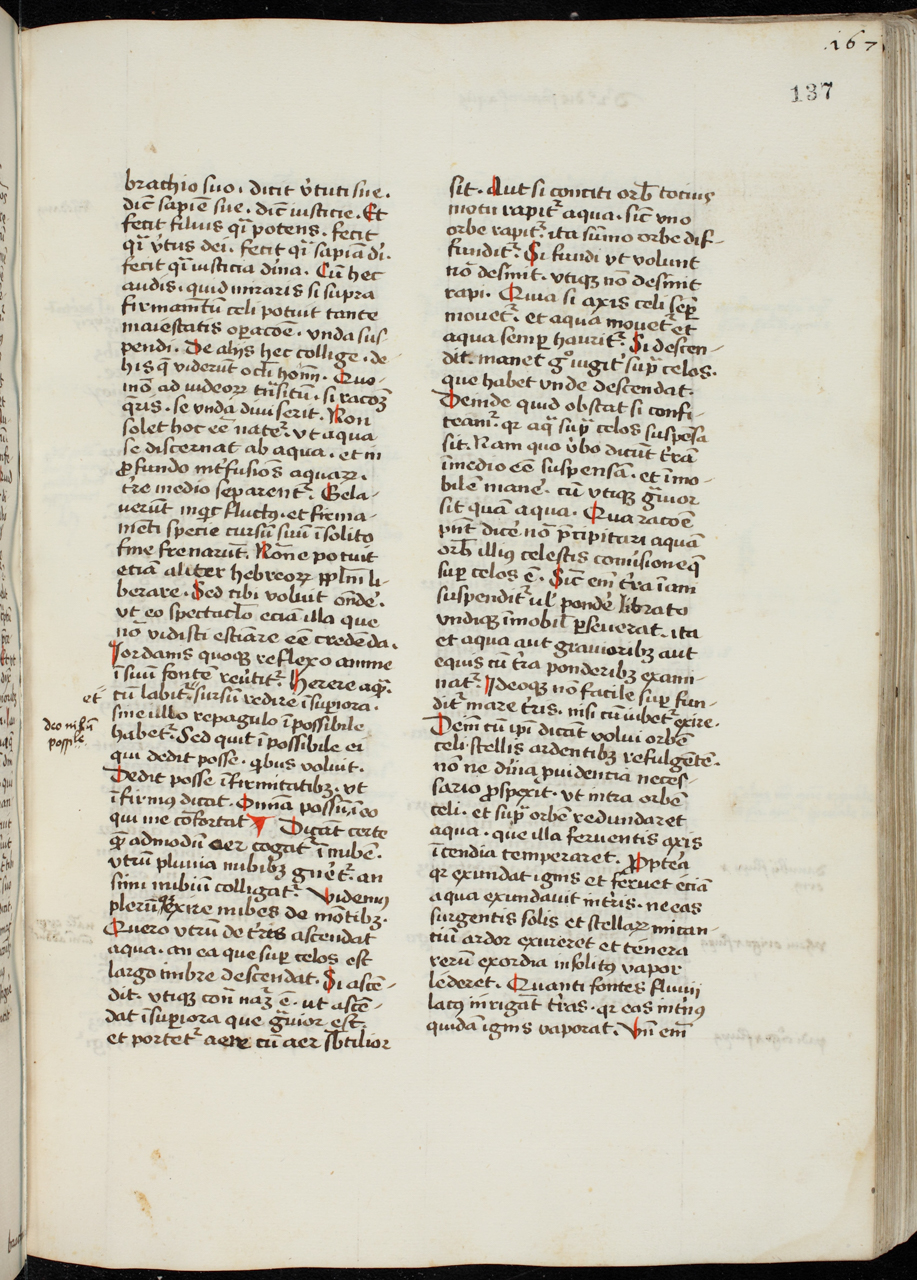 .167
137
brachio suo. dicit v̄tuti sue.
dic̄ sapiē sue. dic̄ iusticie. Et
fecit filius qͥ potens. fecit
qͥ v̄tus dei. fecit qͥ sapiā di.
fecit qͥ iusticia dīna. Cū hec
audis. quid miraris si supra
firmamtūm celi potuit tante
maiestatis opacoē. vnda sus
pendi. De alijs hec collige. de
his q̄ viderūt ocłi homīn. Quo-
mō ad iudeorꝝ trāsitū. si racōꝫ
q̄ris. se vnda diuiserit. Non
solet hoc eē nate. vt aqua
se discernat ab aqua. et in
ꝓfundo int̄fusiōs aquarꝝ.
tr̄e medio separent᷑. Gela-
uerūt inqͥt fluctꝰ. et firma-
mēti specie cursū suū īsolito
fine frenarūt. Nōne potuit
etiā aliter hebreorꝝ pplm̄ li-
berare. Sed tibi voluit ōnde᷑.
vt eo spectacło eciā illa que
nō vidisti estiare eē credenda.
Iordanis quoqꝫ reflexo amne
ī suū fontē reu̅tit᷑. Herere aq̄.
et
cū labit᷑. sursū redire īsupiora.
deo nihil
possibile
sine ullo repagulo īpossibile
habet᷑. Sed quit īpossibile ei
qui dedit posse. qͥbus voluit.
Dedit posse īfirmitatibꝫ. vt
īfirmꝰ dicat. Omīa possū.ī eo
qui me cōfortat. Dicāt certe
qͣ admodū aer cogat᷑ ī nubē.
vtrū pluuia nubibꝫ gn̄et᷑. an
sinu nubiū colligat᷑. Videmus
plerūqꝫ exire nubes de mōtibꝫ.
Quero vtrū de tr̄is ascendat
aqua. an ea que supͬ celos est
largo imbre descendat. Si ascē-
dit. vtiqꝫ cont̄ naꝫ ē. ut ascē-
dat īsupiora que gͣuior est.
et portet᷑ aere cū aer sb̄tilior
sit. Aut si conciti orb̄ totius
motu rapit᷑ aqua. sic̄ vno
orbe rapit᷑. ita sūmo orbe dif-
fundit᷑. Si fundi vt volunt
nō desinit. vtiqꝫ nō desinit
rapi. Quia si axis celi semp̄
mouet᷑. et aqua mouet᷑ et
aqua semp̄ haurit᷑. Si descen-
dit. manet gͦ iugit᷑ supͣ celos.
que habet vnde descendat.
Deinde quid obstat si confi-
team᷑. qr aq̄ supͣ celos suspēsa
sit. Nam quo v̄bo dicūt tr̄ā
īmedio eē suspensā. et īmo-
bilē mane᷑. cū vtiqꝫ gͣuior
sit quā aqua. Qua racoē
pn̄t dice᷑ nō p̄cipitari aquā
orb̄ illiꝰ celestis comīsioneqꝫ
supͬ celos ē. Sic̄ em̄ tr̄a īam
suspendit᷑ ul᷑ ponde᷑ librato
vndiqꝫ īmobil᷑ ꝑseuerat. ita
et aqua aut grauioribꝫ aut
equis cū tr̄a ponderibꝫ exami-
nat᷑. Ideoqꝫ nō facile supͬ fun-
dit᷑ mare tr̄is. nisi cū iubet᷑ exire.
Dein̄ cū ipͥ dicāt volui orbē
celi. stellis ardentibꝫ refulgētē.
nō ne dīna ꝓuidencia neces-
sario ꝓspexit. vt intra orbē
celi. et supͣ orbē redundaret
aqua. que illa feruentis axis
īcendia temperaret. Ꝓpt̄ea
qr exundat ignis et feruet eciā
aqua exundauit int̄ris. ne eas
surgentis solis et stellarꝝ mican-
tiū ardor exureret et tenera
rerū exordia insolitꝰ vapor
lederet. Quanti fontes fluuij
lacꝰ irrigāt tr̄as. qr eas int̄nꝰ
quidā ignis vaporat. Vn̄ em̄